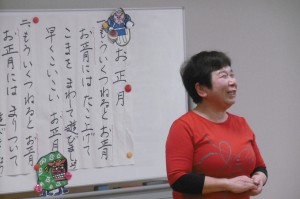 お正月
一、もういくつねるとお正月
お正月にはたこ上げて
こまをまわして遊びましょ
早くこいこいお正月
二、もういくつねるとお正月
お正月にはまりついて